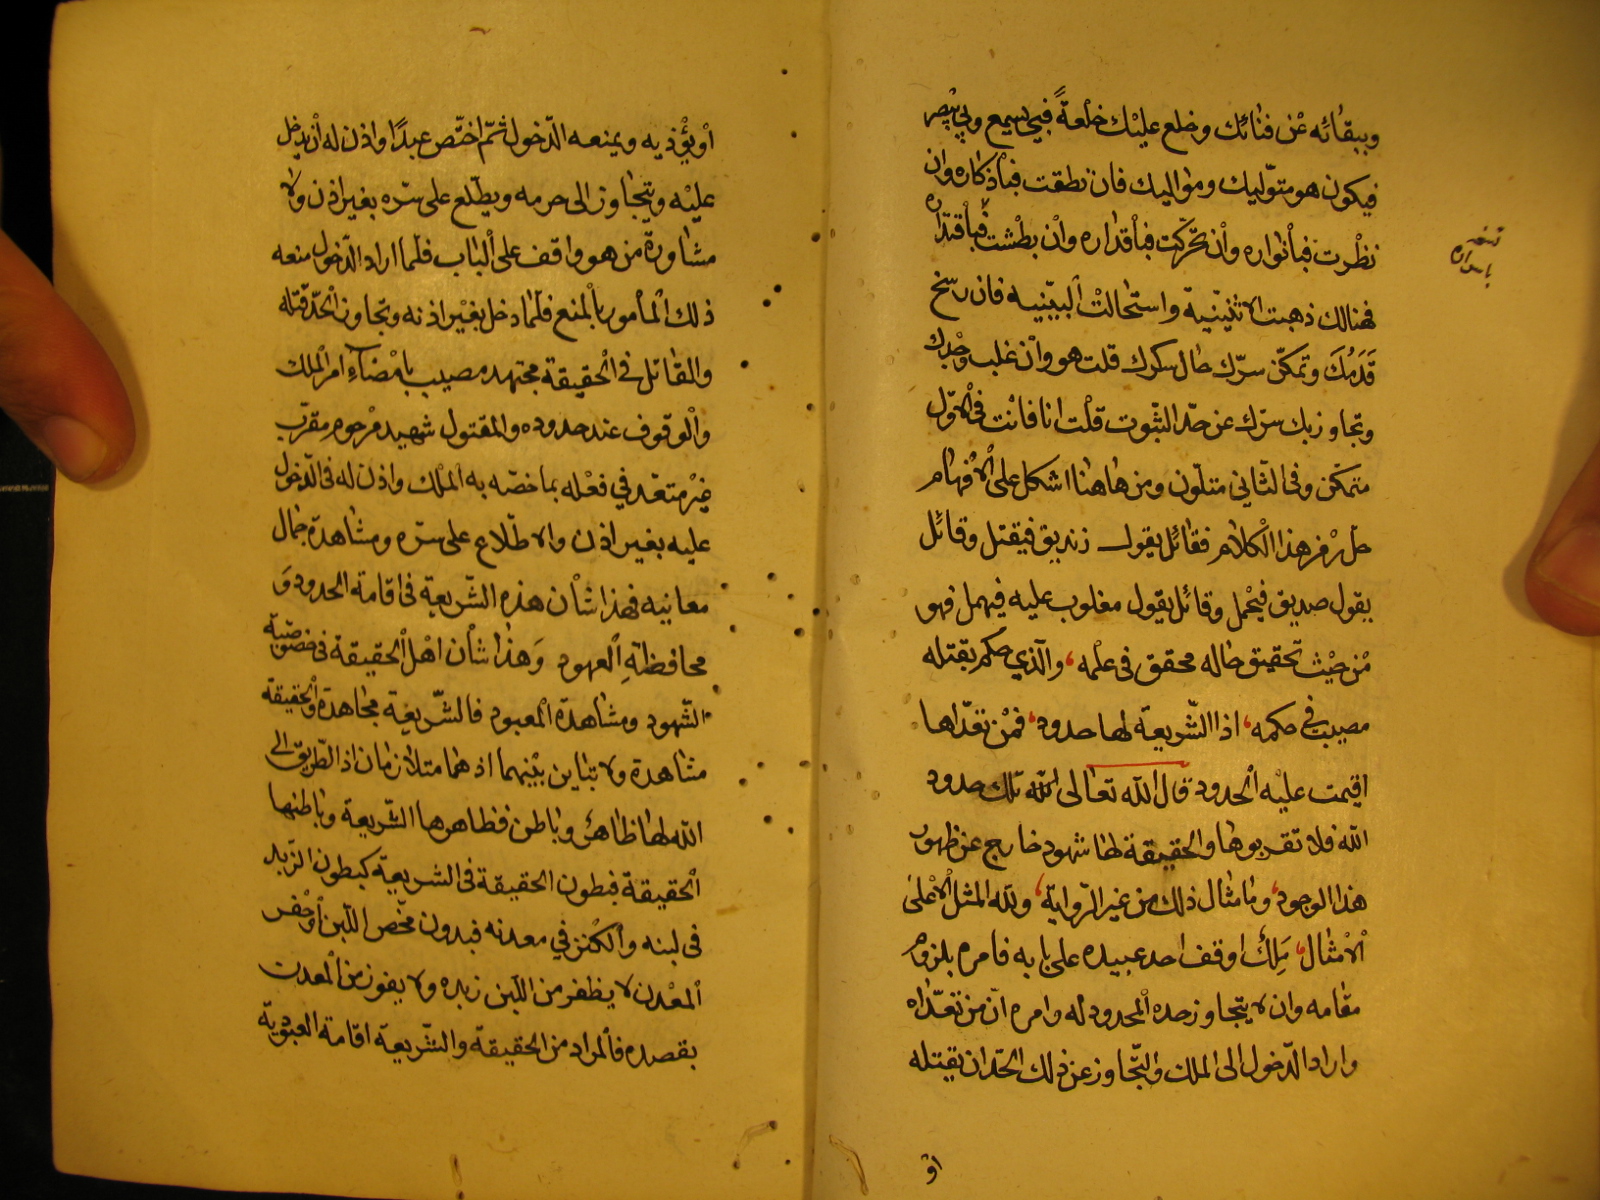 وببقائه عن فنائك وخلع عليك خلعةً فبي يسمع وبي يبصر
فيكون هو متوليك ومواليك فان نطقت فباذكاره وان
نظرت فبأنواره وان تحركت فبأقداره وان بطشت فبأقتداره
فهنالك ذهبت الاثنينية واستحالت البينية فان رسخ
قدمك وتمكن سرك حال سكرك قلت هو وان غلب وجدك
وتجاوز بك سرك عن حد الثبوت قلت انا فانت في الاول
متمكن وفي الثاني متلون ومن هاهنا اشكل على الافهام
حل رمز هذا الكلام فقائل يقول زنديق فيقتل وقائل
يقول صديق فيحمل وقائل يقول مغلوب عليه فيهمل فهو
من حيث تحقيق حاله محقق في علمه، والذي حكم بقتله
مصيب في حكمه، اذا الشريعة لها حدود، فمن تعداها
اقيمت عليه الحدود قال الله تعالى تلك حدود
الله فلا تقربوها والحقيقة لها شهود خارج عن ظهور
هذا الوجود، وما مثال ذلك من غير الرواية، ولله المثل الاعلى
الامثال، مَلِكٌ اوقف احد عبيده على بابه فامره بلزوم
مقامه وان لا يتجاوز حده المحدود له وامره ان من تعداه
واراد الدخول الى الملك والتجاوز عن ذلك الحد ان يقتله
او
نسخه
او يؤذيه ويمنعه الدخول ثم اختص عبدًا واذن له أن يدخل
عليه ويتجاوز الى حرمه ويطلع على سره بغير اذن ولا
مشاورة من هو واقف على الباب فلما اراد الدخول منعه
ذلك المأمور بالمنع فلما دخل بغير اذنه وتجاوز الحد قتله
والقاتل في الحقيقة مجتهد مصيب بامضاء امر الملك
والوقوف عند حدوده والمقتول شهيد مرحوم مقرب
غير متعد في فعله بما خصه به الملك واذن له في الدخول
عليه بغير اذن والاطلاع على سره ومشاهدة جمال
معانيه فهذا شأن هذه الشريعة في اقامة الحدود وَ
محافظة العهود وَهذا شأن اهل الحقيقة في خصوصية
الشهود ومشاهدة المعبود فالشريعة مجاهدة والحقيقة
مشاهدة ولا تباين بينهما اذ هما متلازمان اذ الطريق الى
الله لها ظاهر وباطن فظاهرها الشريعة وباطنها
الحقيقة فبطون الحقيقة في الشريعة كبطون الزبد
في لبنه والكنز في معدنه فبدون مخض اللبن أو حفر
المعدن لا يظفر من اللبن زبده ولا يفوز من المعدن
بقصده فالمراد من الحقيقة والشريعة اقامة العبودية